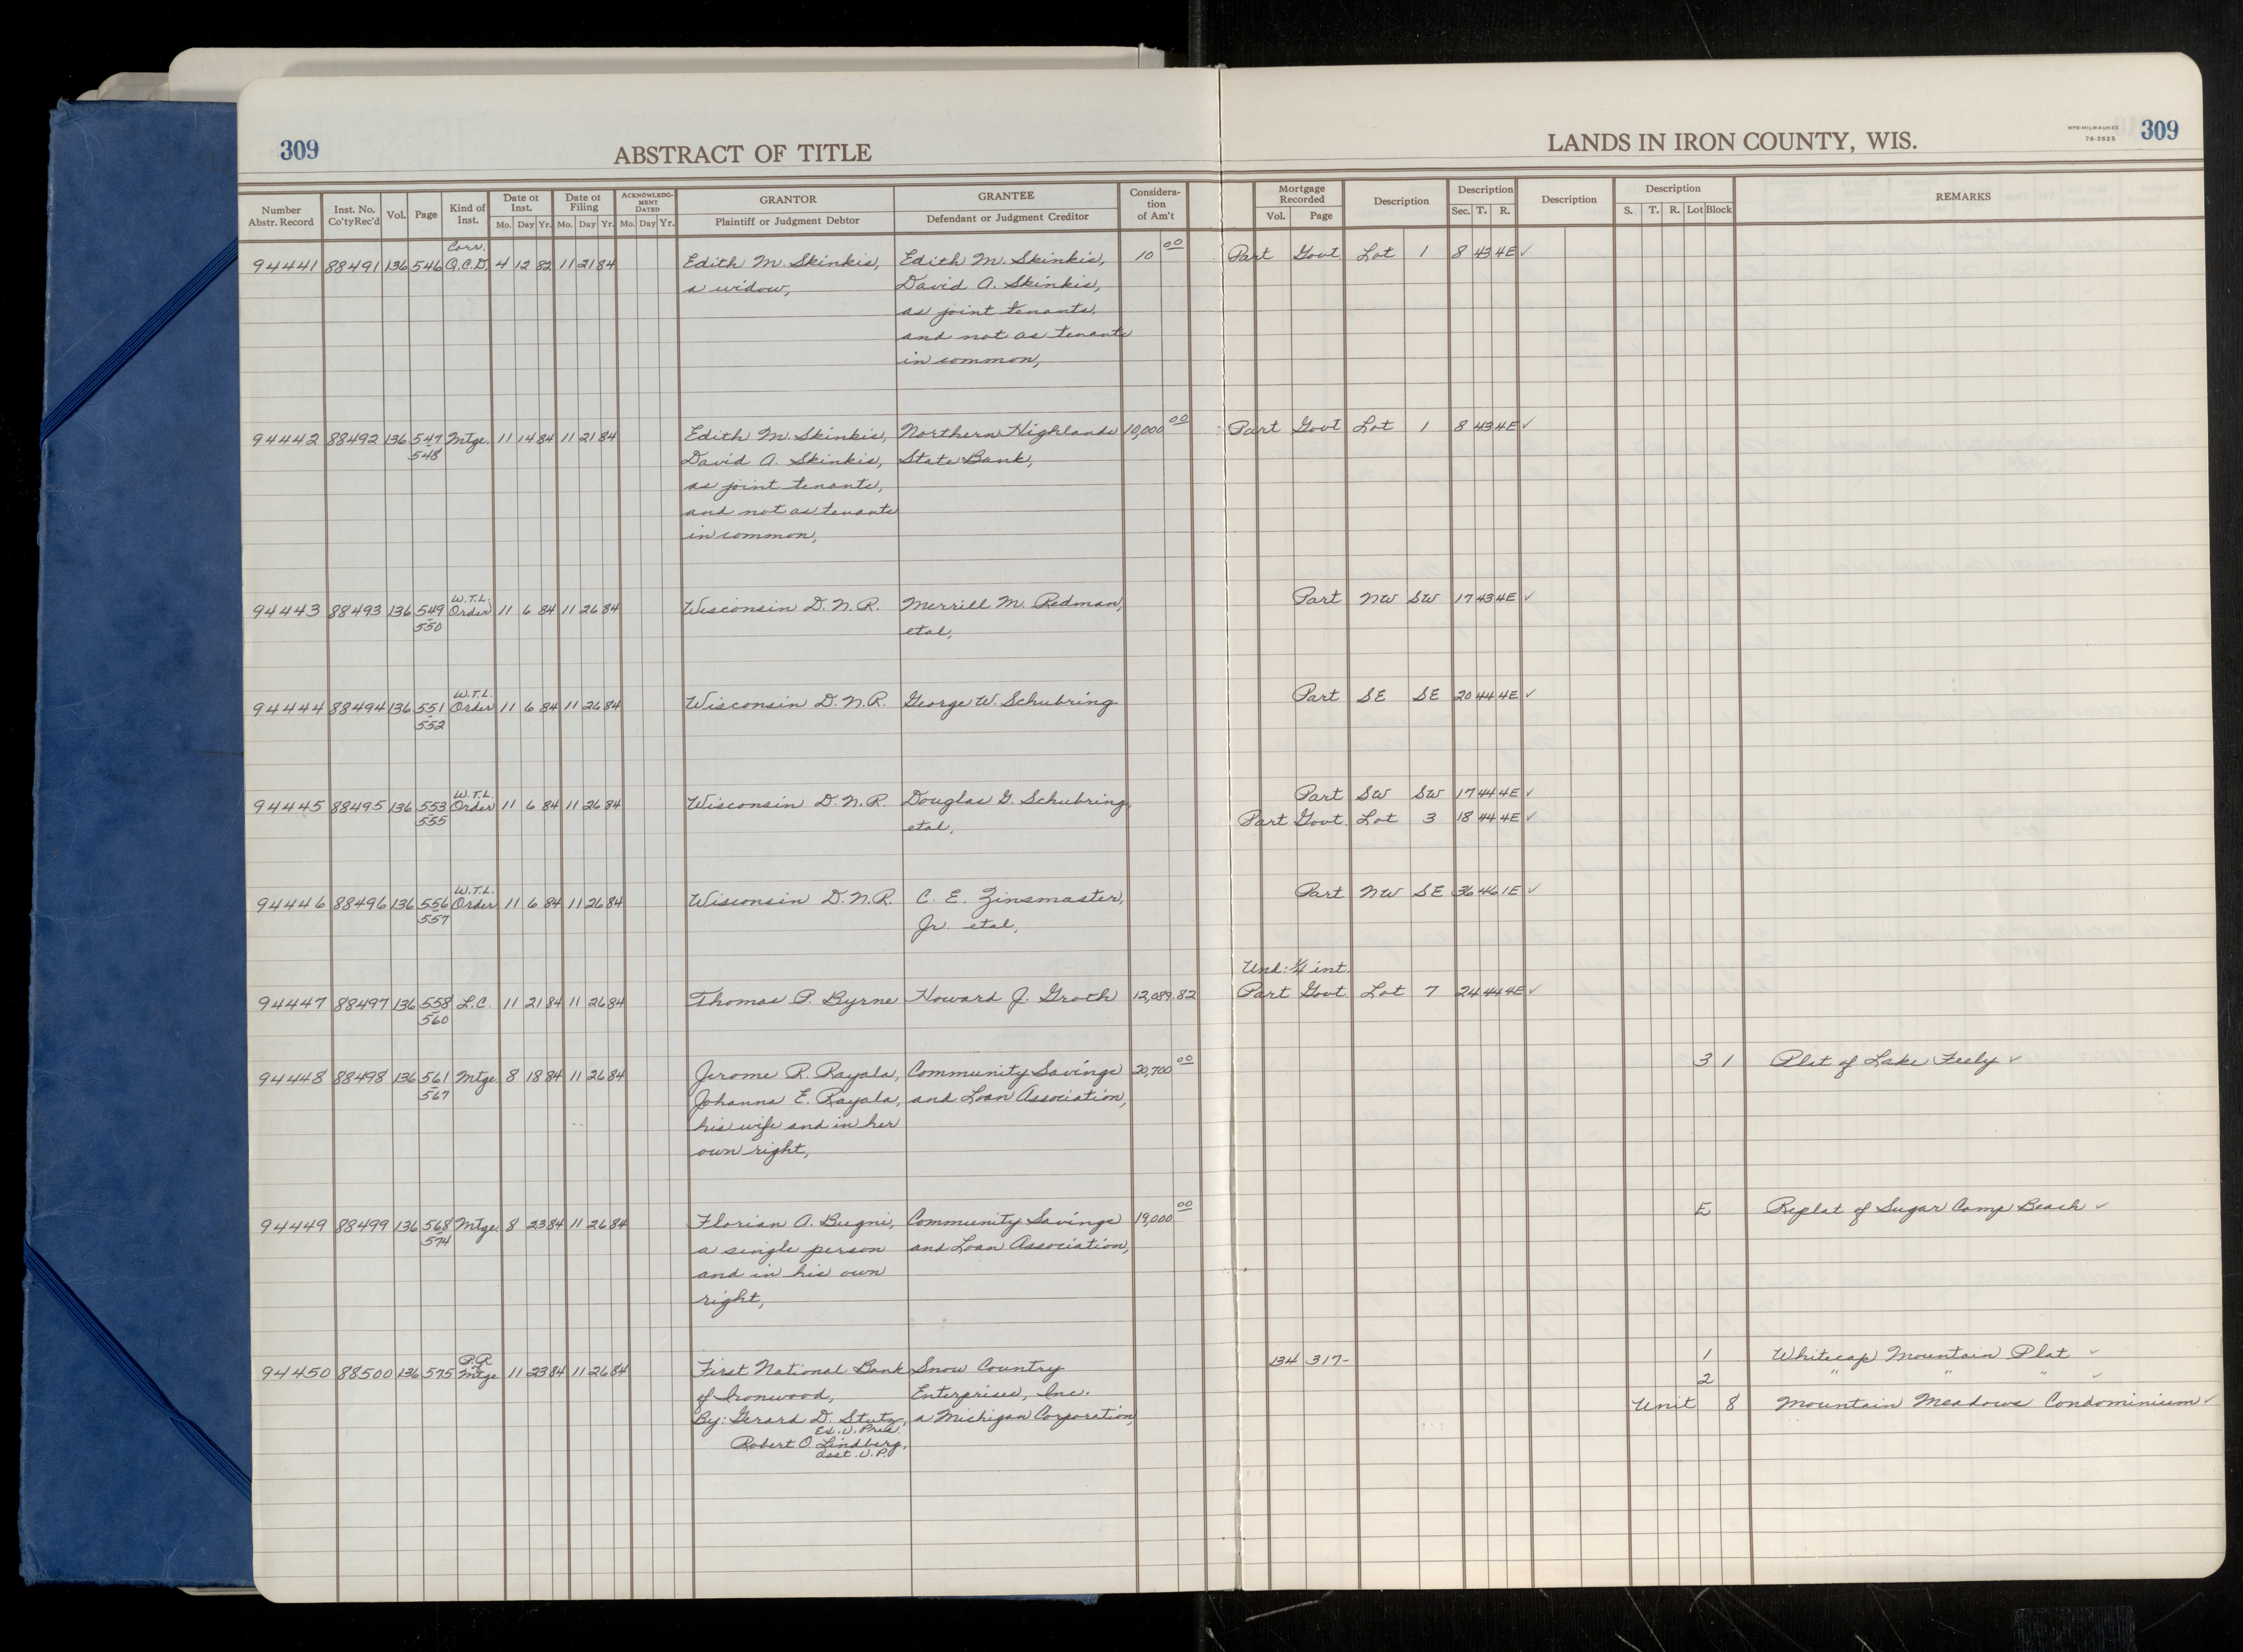 309
ABSTRACT OF TITLE
LANDS IN IRON COUNTY, WIS.
WPB-MILWAUKEE
78-3525
309
Number Abstr. Record | Inst. No. Co'ty Rec'd | Vol. | Page | Kind of Inst. | Date of Inst. Mo. Day Yr. | Date of Filing Mo. Day Yr. | ACKNOWLEDGMENT DATED Mo. Day Yr. | GRANTOR Plaintiff or Judgment Debtor | GRANTEE Defendant or Judgment Creditor | Consideration of Am't | Mortgage Recorded Vol. Page | Description | Description Sec. T. R. | Description | Description S. T. R. Lot Block | REMARKS
Corr.
94441 88491 136 546 Q.C.D. 4 12 82 11 21 84 Edith M. Skinkis, Edith M. Skinkis, 10 00 Part Govt Lot 1 8 43 4E ✓
a widow, David A. Skinkis,
as joint tenants,
and not as tenants
in common,
94442 88492 136 547 Mtge. 11 14 84 11 21 84 Edith M. Skinkis, Northern Highlands 10,000 00 Part Govt Lot 1 8 43 4E ✓
548 David A. Skinkis, State Bank,
as joint tenants,
and not as tenants
in common,
W.T.L.
94443 88493 136 549 Order 11 6 84 11 26 84 Wisconsin D.N.R. Merrill M. Redman, Part NW SW 17 43 4E ✓
550 etal,
W.T.L.
94444 88494 136 551 Order 11 6 84 11 26 84 Wisconsin D.N.R. George W. Schubring Part SE SE 20 44 4E ✓
552
W.T.L.
94445 88495 136 553 Order 11 6 84 11 26 84 Wisconsin D.N.R. Douglas G. Schubring, Part SW SW 17 44 4E ✓
555 etal, Part Govt. Lot 3 18 44 4E ✓
W.T.L.
94446 88496 136 556 Order 11 6 84 11 26 84 Wisconsin D.N.R. C. E. Zinsmaster, Part NW SE 36 46 1E ✓
557 Jr. etal,
Und: ¼ int.
94447 88497 136 558 L.C. 11 21 84 11 26 84 Thomas P. Byrne Howard J. Groth 12,089.82 Part Govt Lot 7 24 44 4E ✓
560
94448 88498 136 561 Mtge. 8 18 84 11 26 84 Jerome R. Rayala, Community Savings 20,700 00 3 1 Plat of Lake Feely ✓
567 Johanna E. Rayala, and Loan Association,
his wife and in her
own right,
94449 88499 136 568 Mtge. 8 23 84 11 26 84 Florian A. Bugni, Community Savings 19,000 00 E Replat of Sugar Camp Beach ✓
574 a single person and Loan Association,
and in his own
right,
P.R.
94450 88500 136 575 Mtge 11 23 84 11 26 84 First National Bank Snow Country 134 317- 1 Whitecap Mountain Plat ✓
of Ironwood, Enterprises, Inc. 2 " " " ✓
By: Gerard D. Stutz, a Michigan Corporation, Unit 8 Mountain Meadows Condominium ✓
Ex. V. Pres.
Robert O. Lindberg,
Asst. V.P.